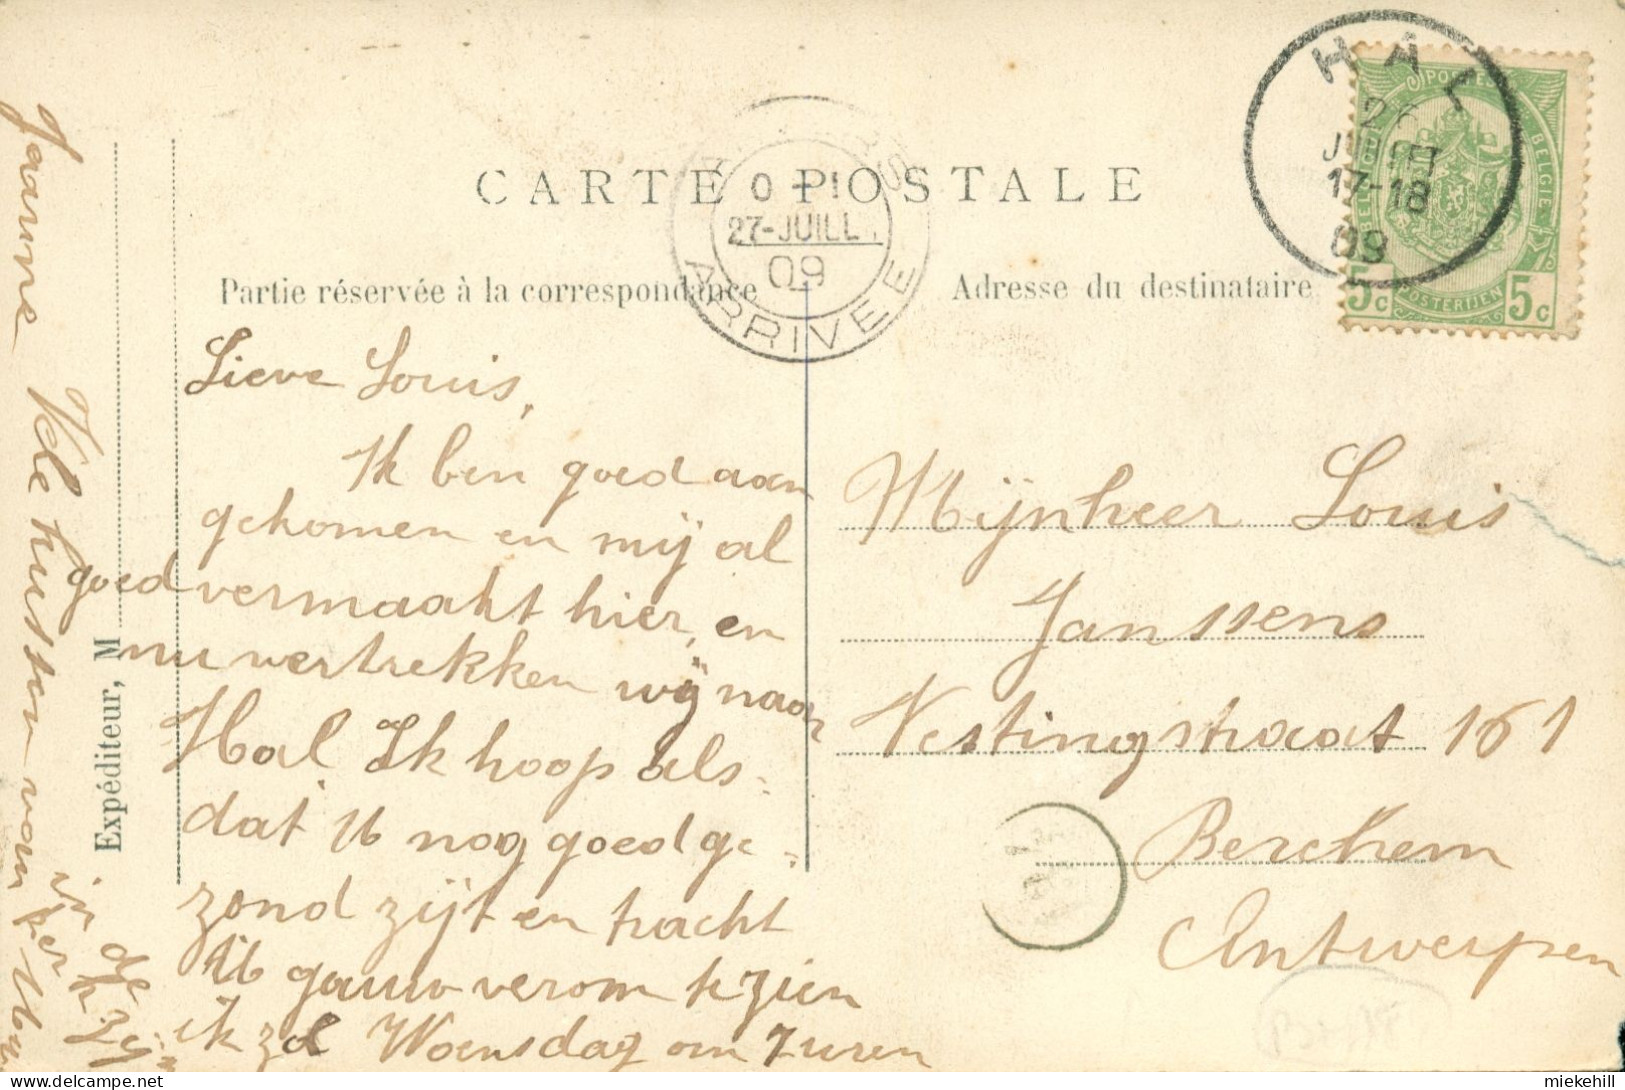 HAL
26
JUILLET
17-18
09
POSTES
BELGIQUE
BELGIË
POSTERIJEN
5c 5c
CARTE POSTALE
27-JUILL.
09
ARRIVEE
Partie réservée à la correspondance
Adresse du destinataire
Expéditeur, M
Lieve Louis,
Ik ben goed aan
gekomen en mij al
goed vermaakt hier, en
nu vertrekken wij naar
Hal. Ik hoop als-
dat U nog goed ge-
zond zijt en tracht
U gauw verom te zien
ik zal Woensdag om 7 uren
in de kerk zijn
Jaanne Vele kussen van Uw
Mijnheer Louis
Janssens
Vestingstraat 161
Berchem
Antwerpen
miekehill